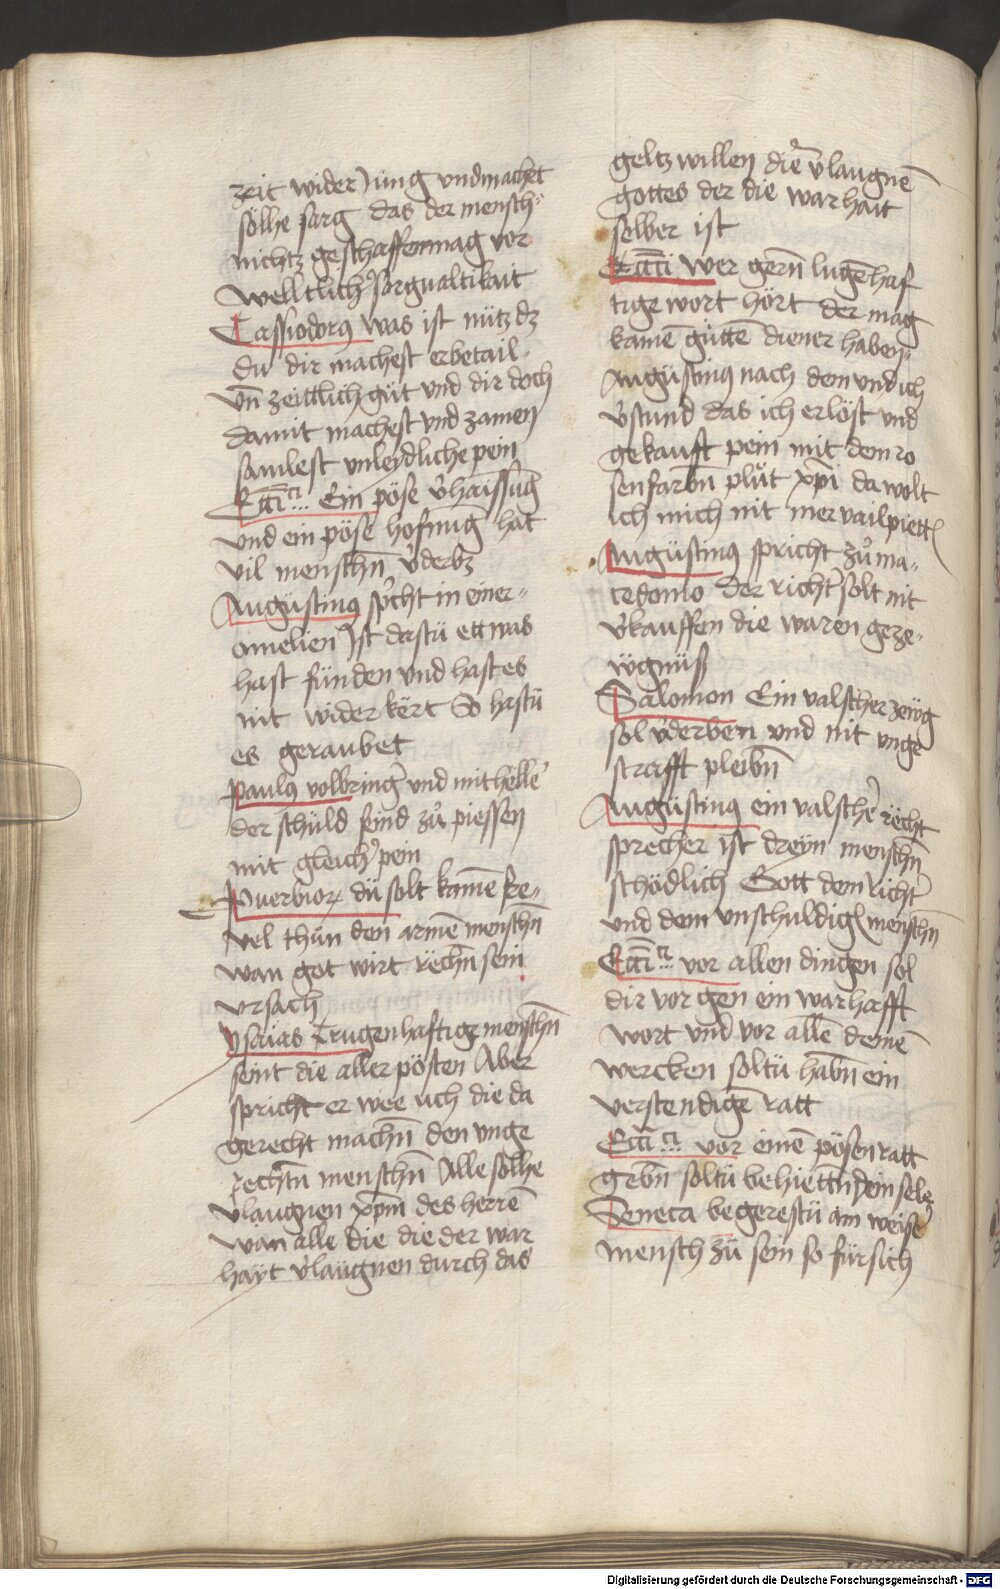 zeit wider Jung und machet
sölhe sorg das der mensch
nichtz geschaffen mag vor
welltlicher sorgualtikait
Cassiodorus was ist nütz dz
du dir machest erbetail
vn̄ zeittlich güt und dir doch
damit machest vnd zamen
samlest vnleydliche pein
Eccīci Ein pöse v̓haissūg
und ein pöse hofnūg hat
vil menschn̄ v̓derbz
Augustinus spricht in einer
omelien Ist dastu ettwas
hast fünden und hast es
nit wider kërt So hastü
es geraubet
Paulus volbringer und mithëlle
der schuld seind zů piessen
mit gleicher pein
Puerbior dü solt kainē fre-
vel thůn den armē menschn̄
wan got wirt rechn̄ sein
vrsach
Ysaias Trugenhaftige menschn̄
seint die aller pösten Aber
spricht er wee uch die da
gerecht machn̄ den unge
rechtn̄ menschn̄ Alle sölhe
v̓laugnen xpm̄ des herrē
wan alle die die der war
hayt v̓laugnen durch das
geltz willen die v̓laugnē
gottes der die warhait
selber ist
Eccīci wer gern̄ lugēhaf
tige wort hört der mag
kainē gůttē diener haben
Augustinus nach dem und ich
v̓stund das ich erlöst und
gekauft pein mit dem ro
senfarbn̄ plůt xp̄i da wolt
ich mich nit mer vailpiettē
Augustinus spricht zů ma-
cedonio Der richter solt nit
v̓kauffen die waren geze-
ügnüß
Salomon Ein valscher zeüg
sol v̓derben und nit unge
strafft pleibn̄
Augustinus ein valscher recht
sprecher ist dreyn menschn̄
schödlich Gott dem richter
und dem unschuldigē menschn̄
Eccīci vor allen dingen sol
dir vor gen ein warhafft
wort und vor allē deinē
wercken soltu habn̄ ein
verstendigē ratt
Eccīci vor einē pösen ratt
gebn̄ soltu behiettn̄ dein sele
Seneca begerestü ain weiser
mensch zü sein so fürsich